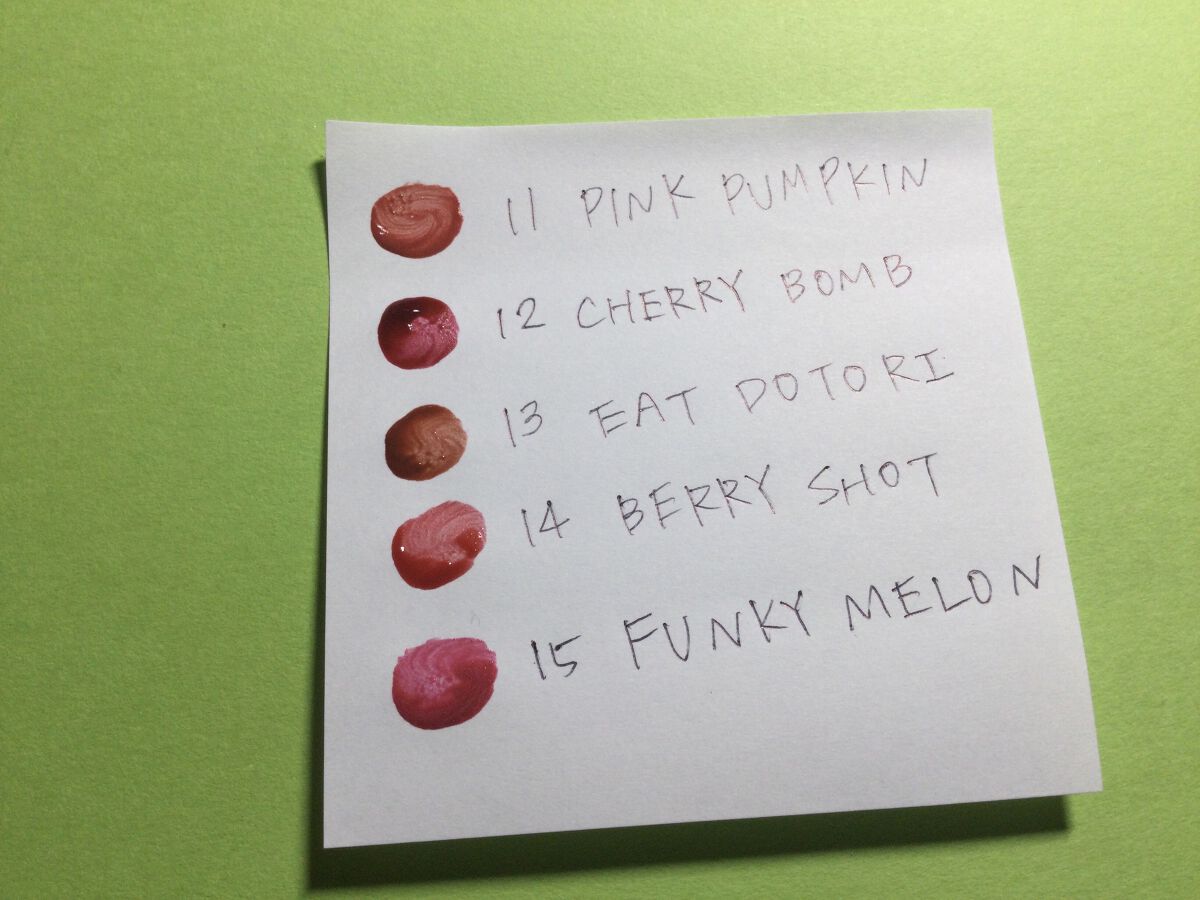 11 PINK PUMPKIN
12 CHERRY BOMB
13 EAT DOTORI
14 BERRY SHOT
15 FUNKY MELON